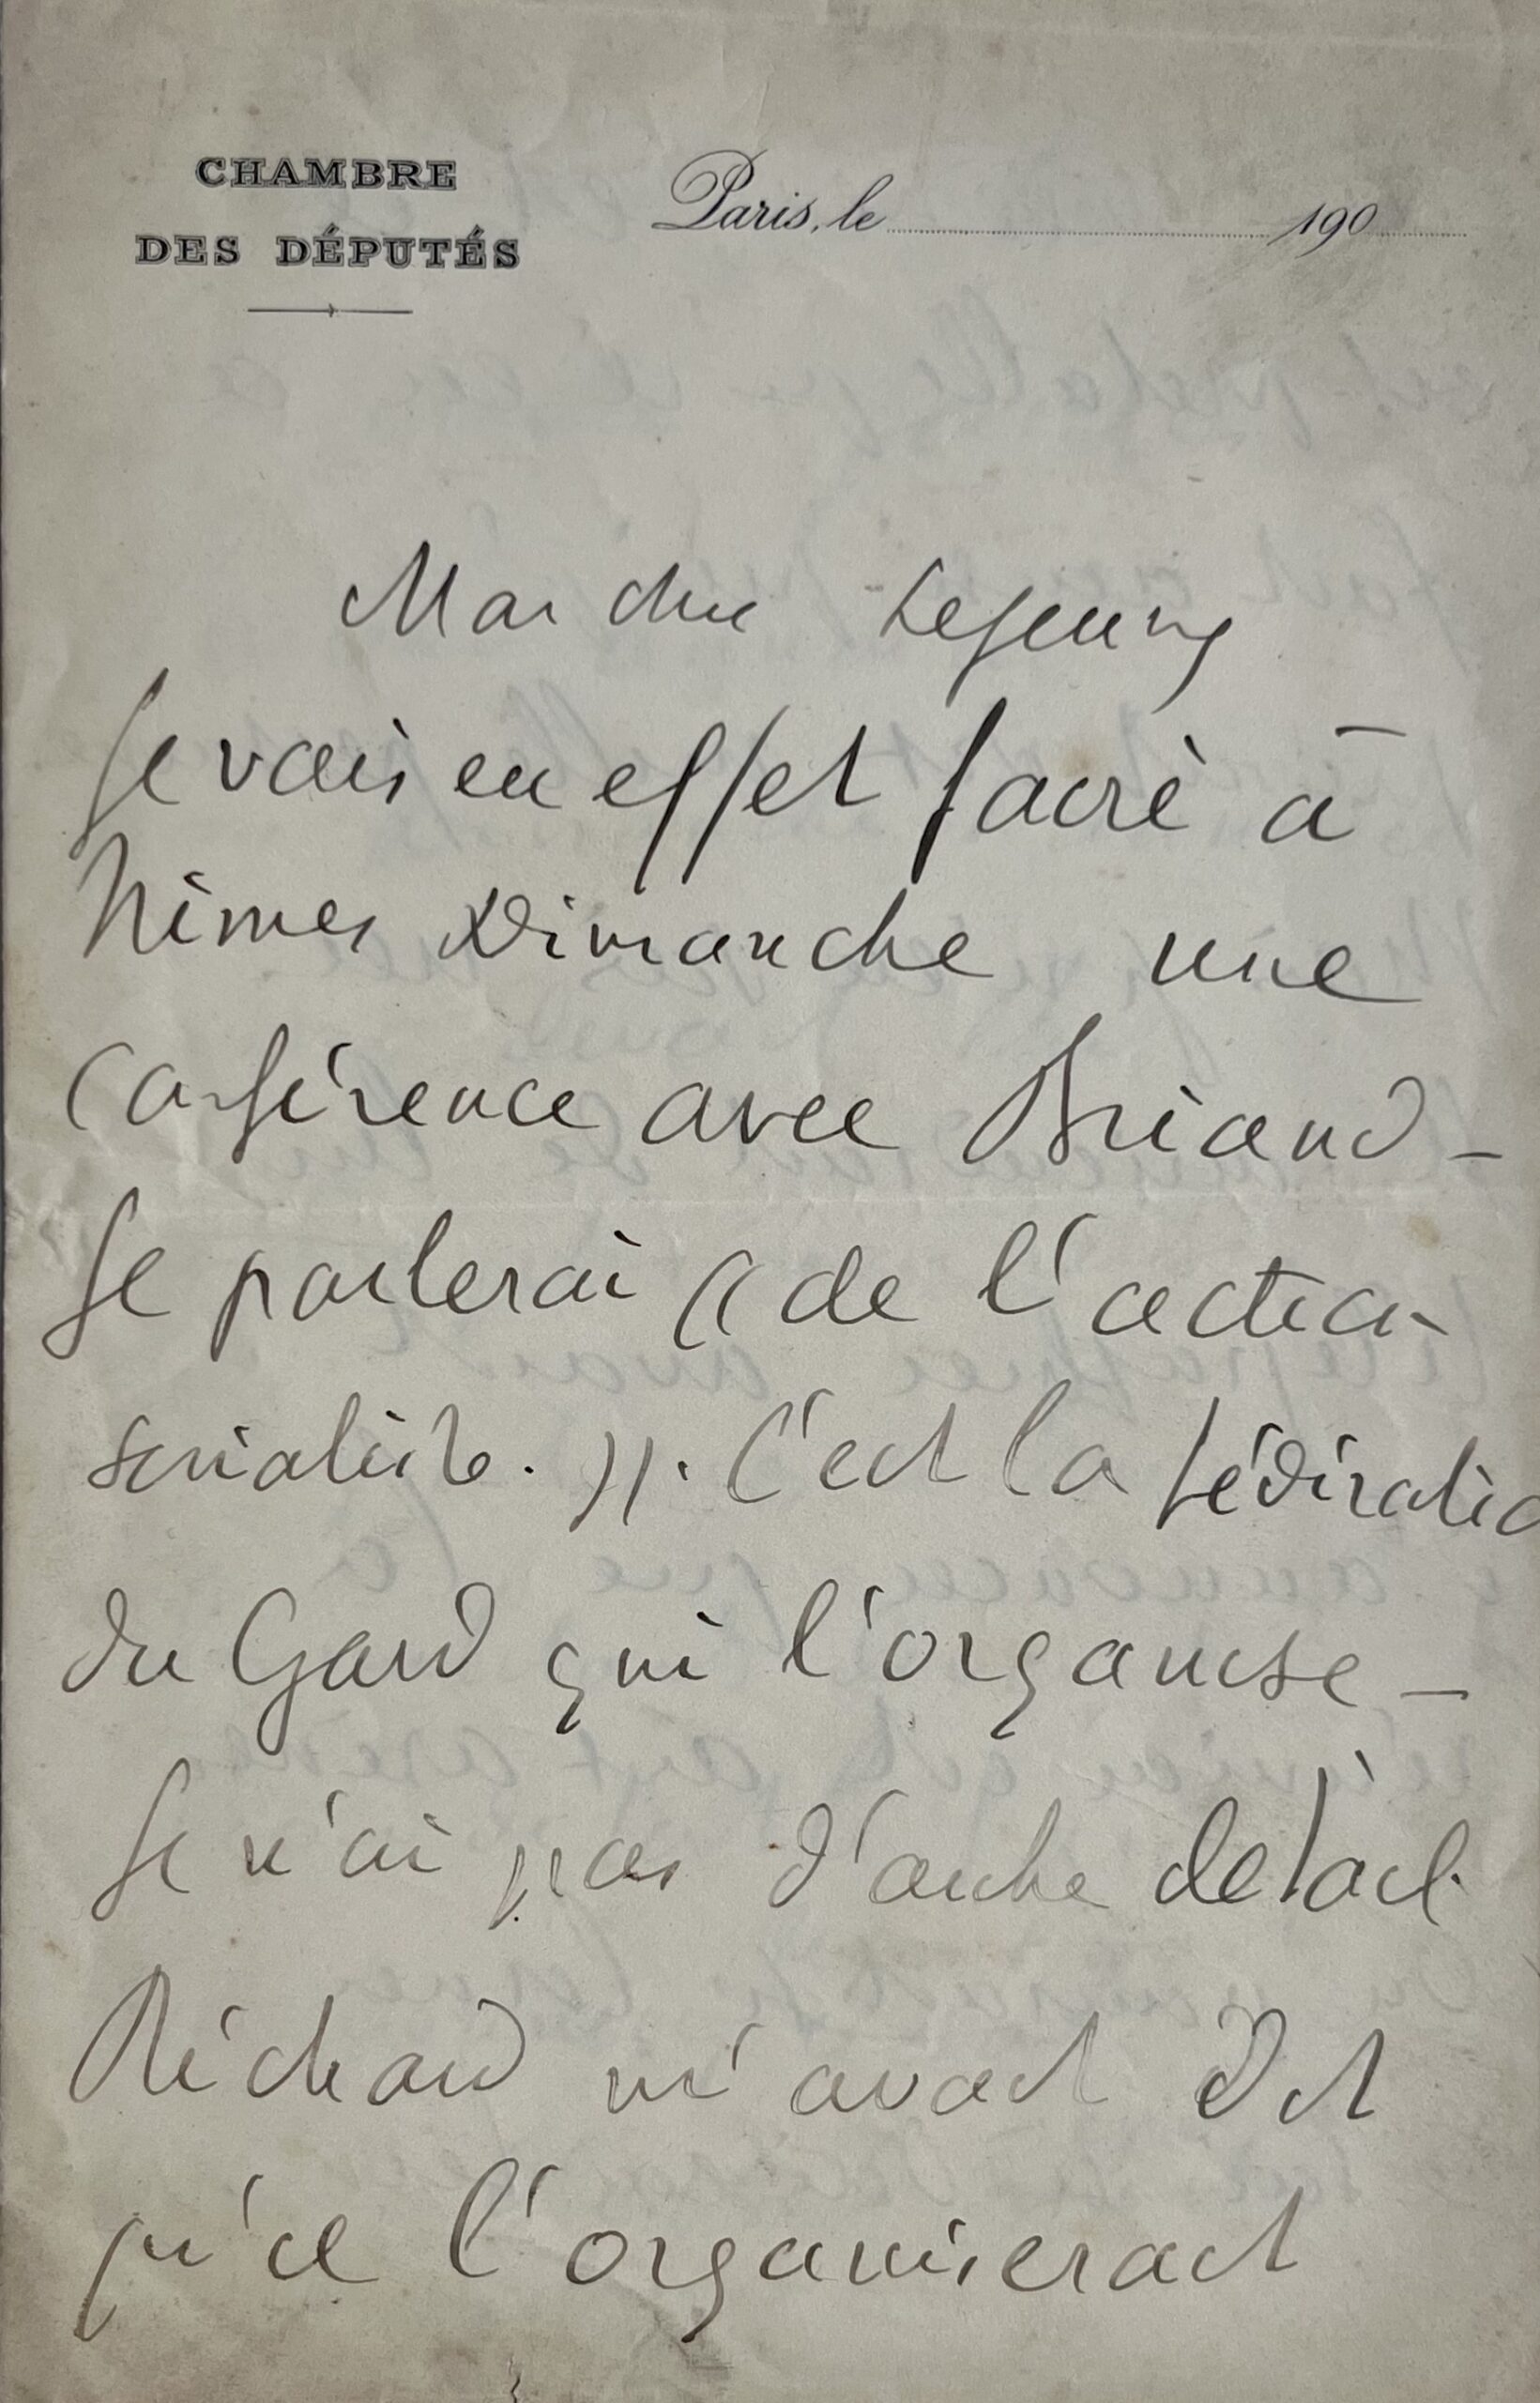 CHAMBRE
DES DÉPUTÉS
Paris, le 190
Mon cher
Je vais en effet faire à
Nîmes Dimanche une
Conférence avec Briand -
Je parlerai « de l'action
socialiste. ». C'est la fédératio
du Gard qui l'organise -
Je n'ai pas d'autre détail.
Réchard m'avait dit
qu'il l'organiserait